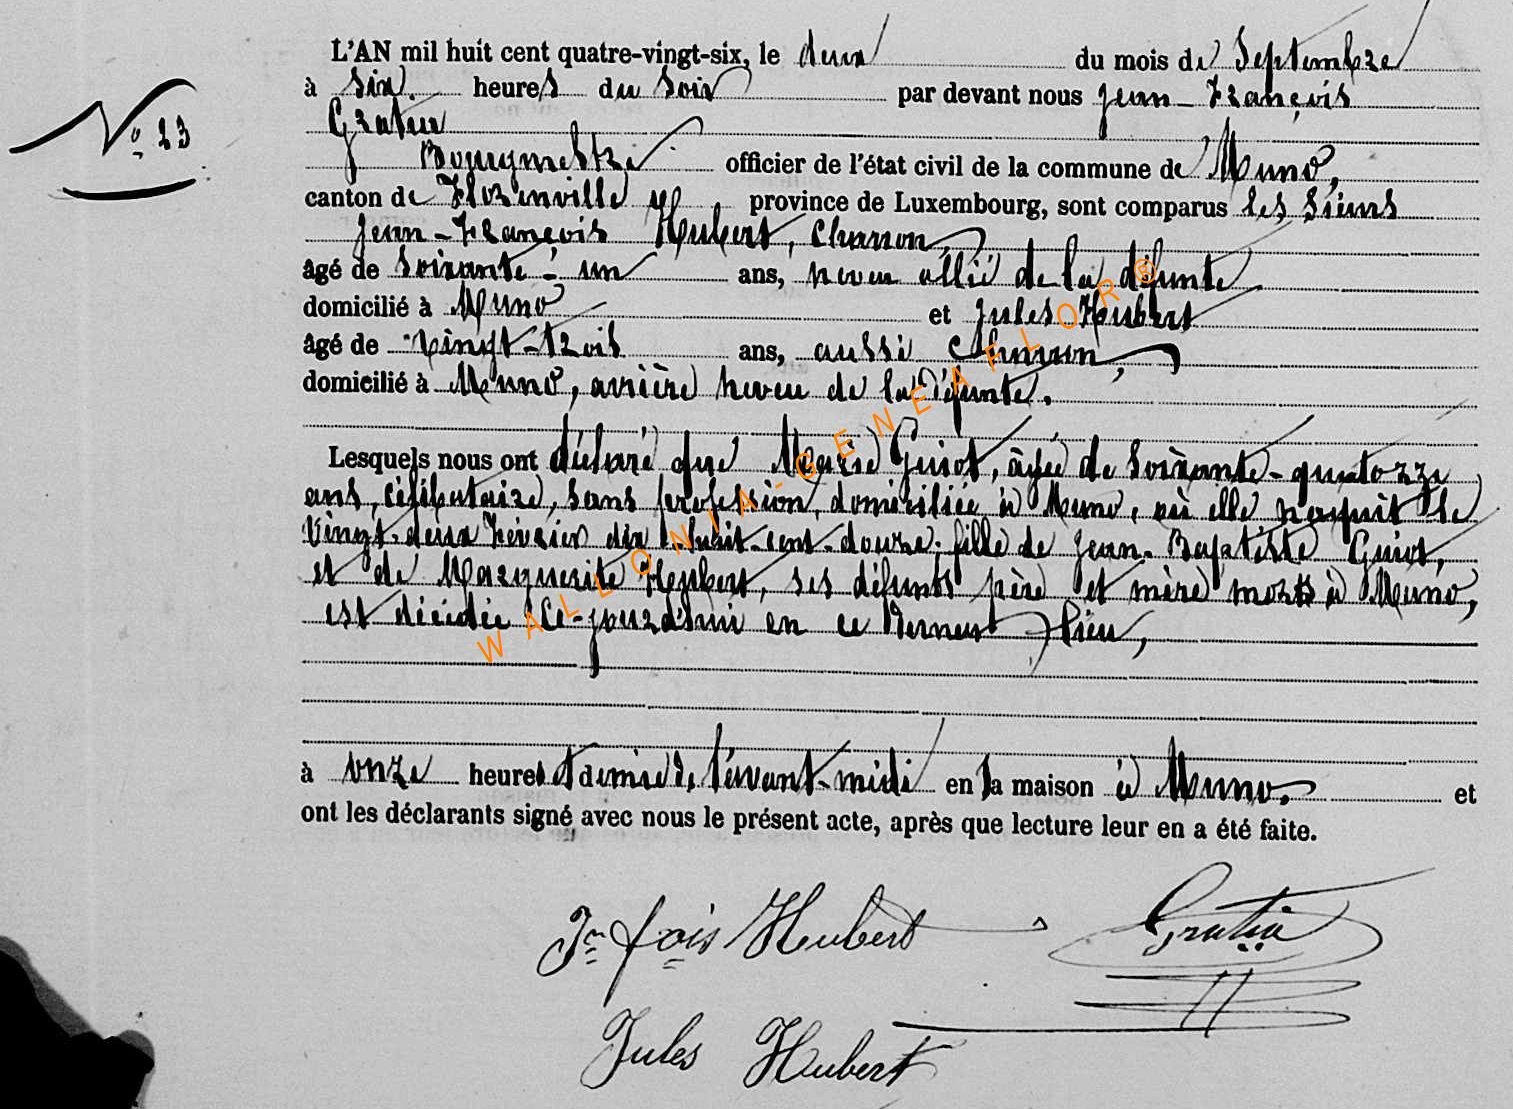 L'AN mil huit cent quatre-vingt-six, le deux du mois de Septembre
à six heures du soir par devant nous Jean-François
N° 23
Gratia
Bourgmestre officier de l'état civil de la commune de Muno,
canton de Florenville province de Luxembourg, sont comparus les Sieurs
Jean-François Hubert, Charron,
âgé de soixante-un ans, neveu allié de la défunte
domicilié à Muno et Jules Hubert
âgé de vingt-trois ans, aussi Charron,
domicilié à Muno, arrière neveu de la défunte.
Lesquels nous ont déclaré que Marie Guiot, âgée de soixante-quatorze
ans, célibataire, sans profession, domiciliée à Muno, où elle naquit le
vingt-deux Février dix-huit-cent-douze; fille de Jean-Baptiste Guiot,
et de Marguerite Hubert, ses défunts père et mère morts à Muno,
est décédée ce-jourd'hui en ce dernier lieu,
à onze heures et demie de l'avant-midi en sa maison à Muno. et
ont les déclarants signé avec nous le présent acte, après que lecture leur en a été faite.
Jn fois Hubert Gratia
Jules Hubert
WALLONIA-GENEAFLOR®